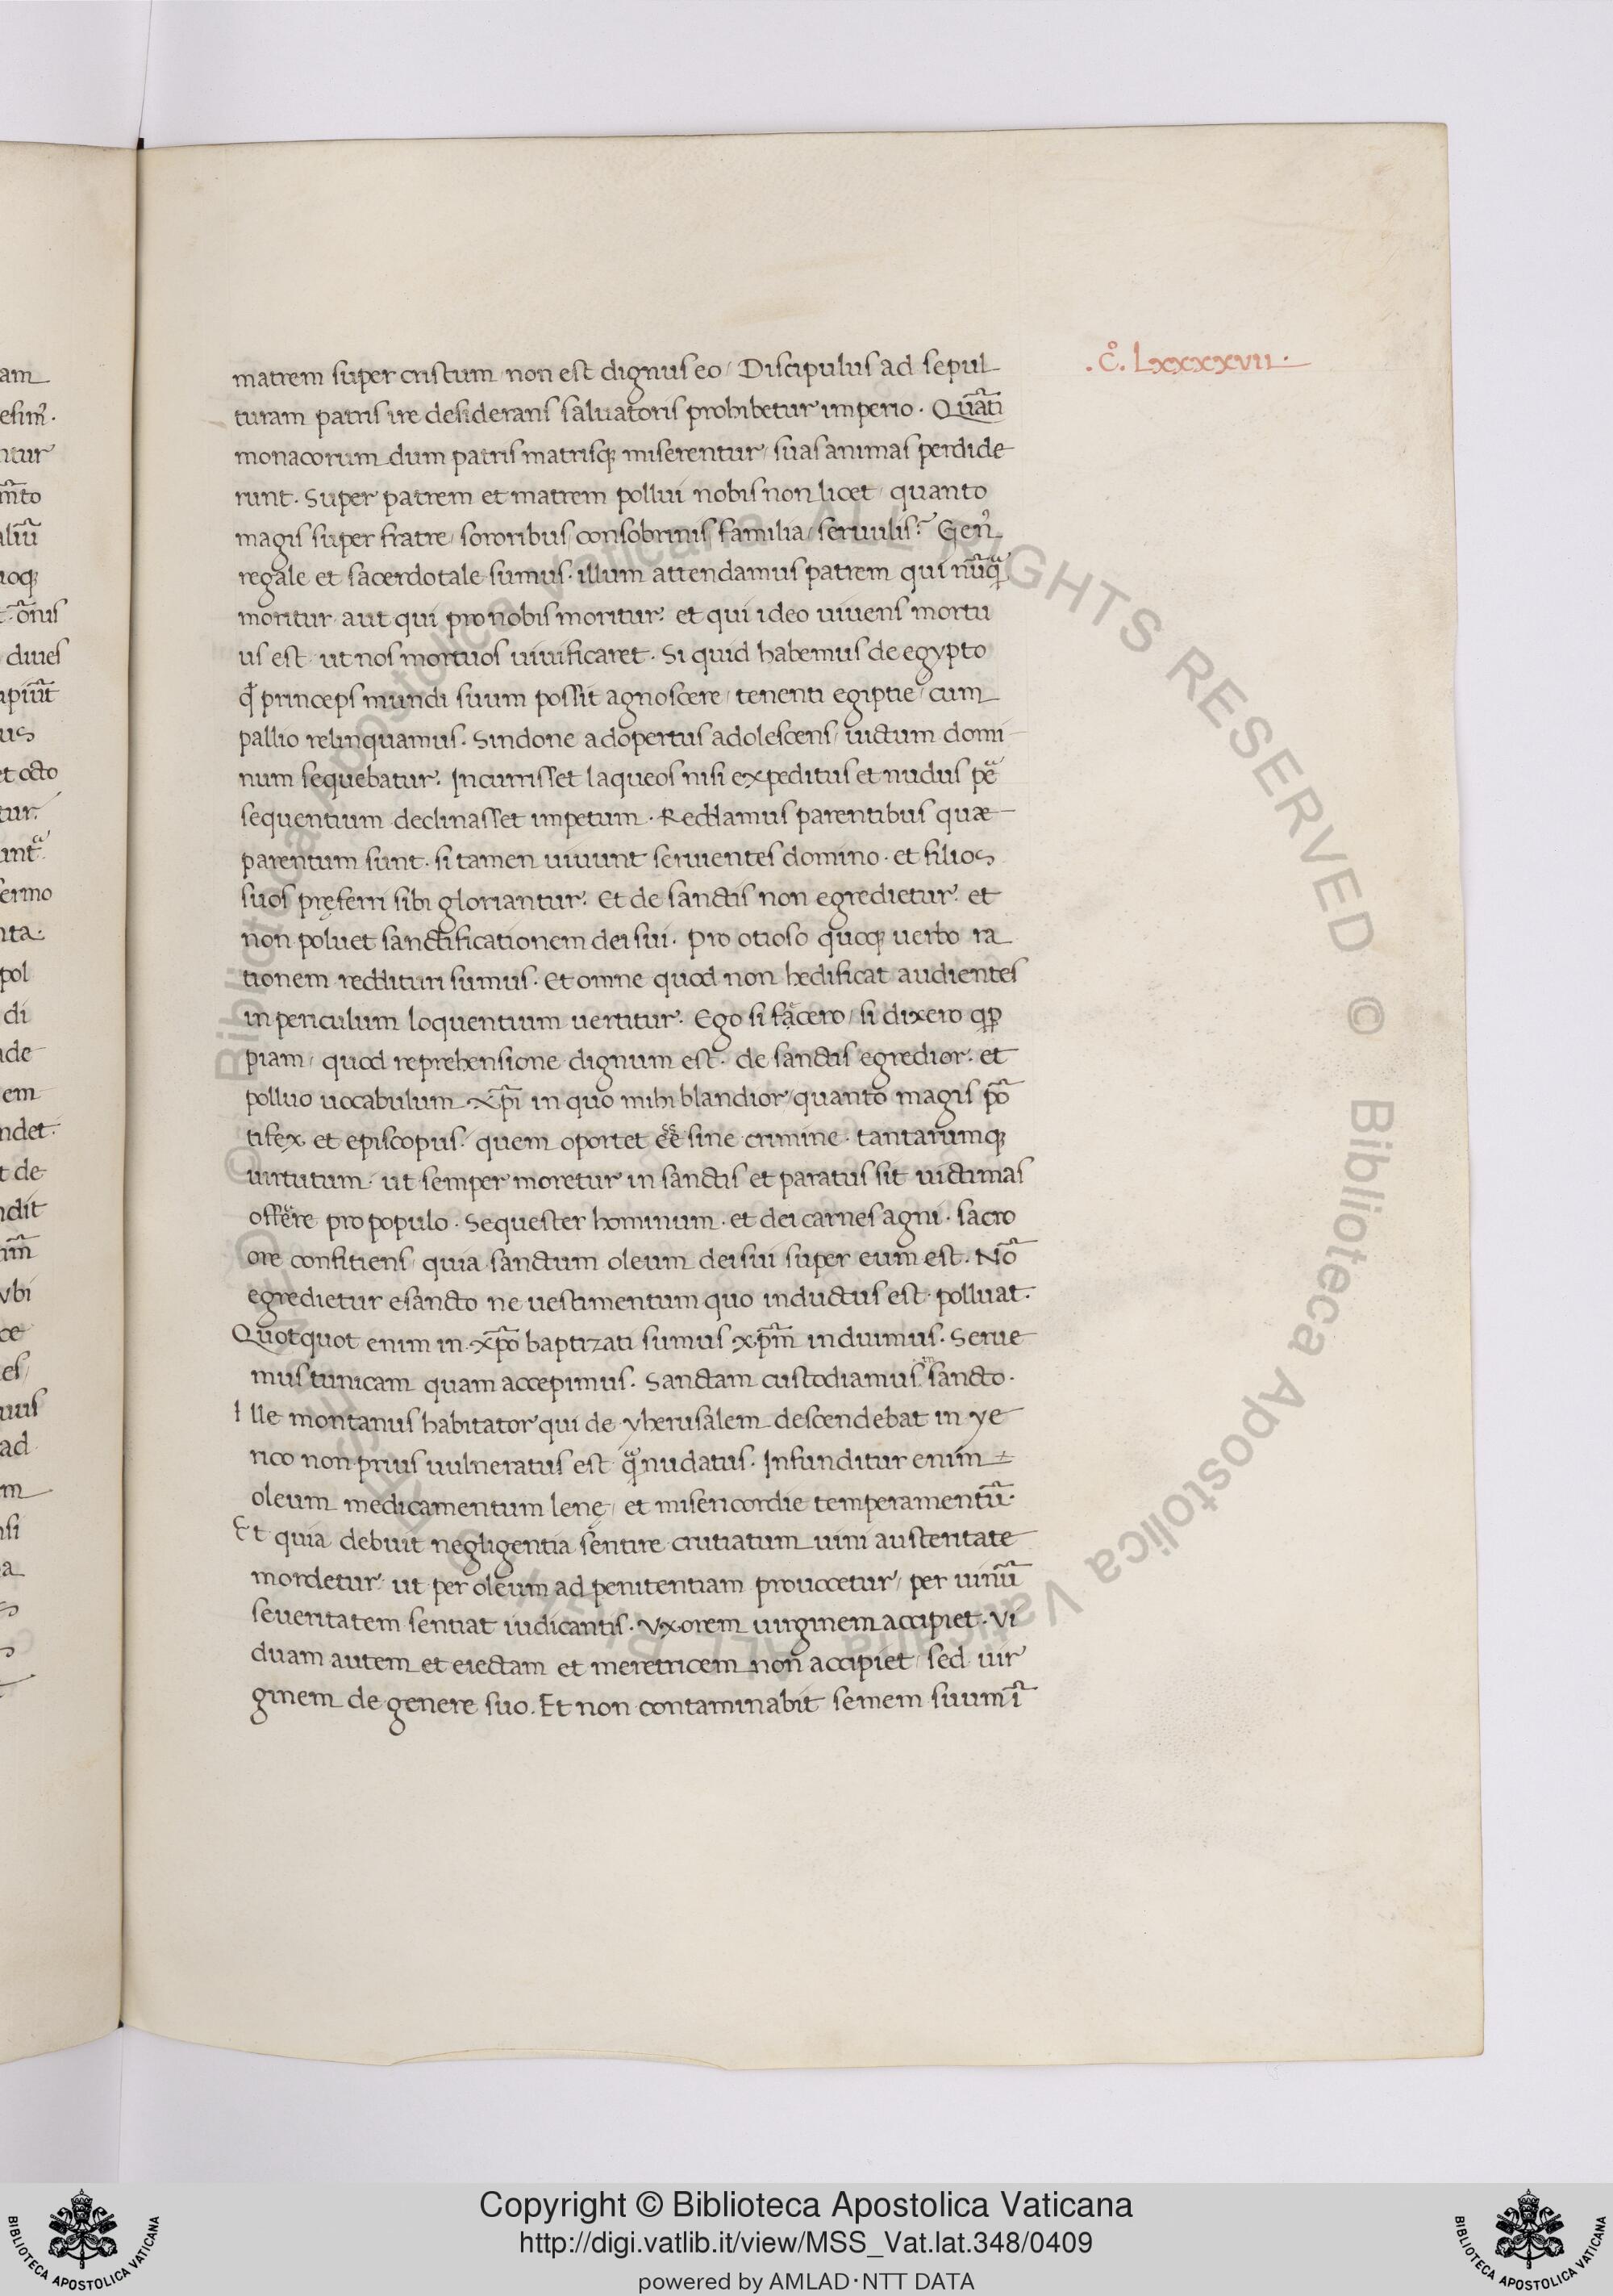 .c̊. Lxxxxvii.
matrem super cristum non est dignus eo / Discipulus ad sepul
turam patris ire desiderans saluatoris prohibetur imperio . Quāti
monacorum dum patris matrisq; miserentur / suas animas perdide
runt . Super patrem et matrem pollui nobis non licet / quanto
magis super fratre / sororibus / consobrinis / familia / seruulis? Gen᾽
regale et sacerdotale sumus . illum attendamus patrem qui nūqͣ
moritur aut qui pro nobis moritur . et qui ideo uiuens mortu
us est ut nos mortuos uiuificaret . Si quid habemus de egypto
qđ princeps mundi suum possit agnoscere / tenenti egiptie / cum
pallio relinquamus . Sindone adopertus adolescens / iuctum domi
num sequebatur . Incurrisset laqueos nisi expeditus et nudus pͤ
sequentium declinasset impetum . Reddamus parentibus quæ
parentum sunt . si tamen uiuunt seruientes domino . et filios
suos pręferri sibi gloriantur . Et de sanctis non egredietur . et
non poluet sanctificationem dei sui . Pro otioso quoq; uerbo ra
tionem reddituri sumus . Et omne quod non hedificat audientes
in periculum loquentium uertitur . Ego si fącero / si dixero qp̄
piam / quod reprehensione dignum est . de sanctis egredior . et
polluo uocabulum xp̄i in quo mihi blandior / quanto magis pō
tifex et episcopus . quem oportet eē sine crimine . tantarumq;
uirtutum . ut semper moretur in sanctis et paratus sit uictimas
offere pro populo . Sequester hominum . et dei carnes agni . sacro
ore confitiens / quia sanctum oleum dei sui super eum est . Nō
egredietur e sancto ne uestimentum quo inductus est . polluat .
Quotquot enim in xp̄o baptizati sumus xp̄m induimus . Serue
mus tunicam quam accepimus . Sanctam custodiamus sancto .
Ille montanus habitator qui de yherusalem descendebat in ye
rico non prius uulneratus est qͣ nudatus . Infunditur enim
oleum medicamentum lenę / et misericordie temperamentū .
Et quia debuit negligentia sentire crutiatum uini austeritate
mordetur . ut per oleum ad penitentiam prouocetur / per uinū
seueritatem sentiat iudicantis . Vxorem uirginem accipiet . Vi
duam autem et eiectam et meretricem non accipiet / sed uir
ginem de genere suo . Et non contaminabit semem suum ī
am
esim᾽.
ntur
m̄to
aliū
uoq;
diues
us
et octo
tur.
ermo
ita.
pol
di
ade
em
ndet.
t de
ndit
vbi
ce
es/
uus
ad
m
nsi
a
© Biblioteca Apostolica Vaticana ALL RIGHTS RESERVED © Biblioteca Apostolica Vaticana ALL RIGHTS RESERVED
Copyright © Biblioteca Apostolica Vaticana
http://digi.vatlib.it/view/MSS_Vat.lat.348/0409
powered by AMLAD·NTT DATA
BIBLIOTECA APOSTOLICA VATICANA
BIBLIOTECA APOSTOLICA VATICANA